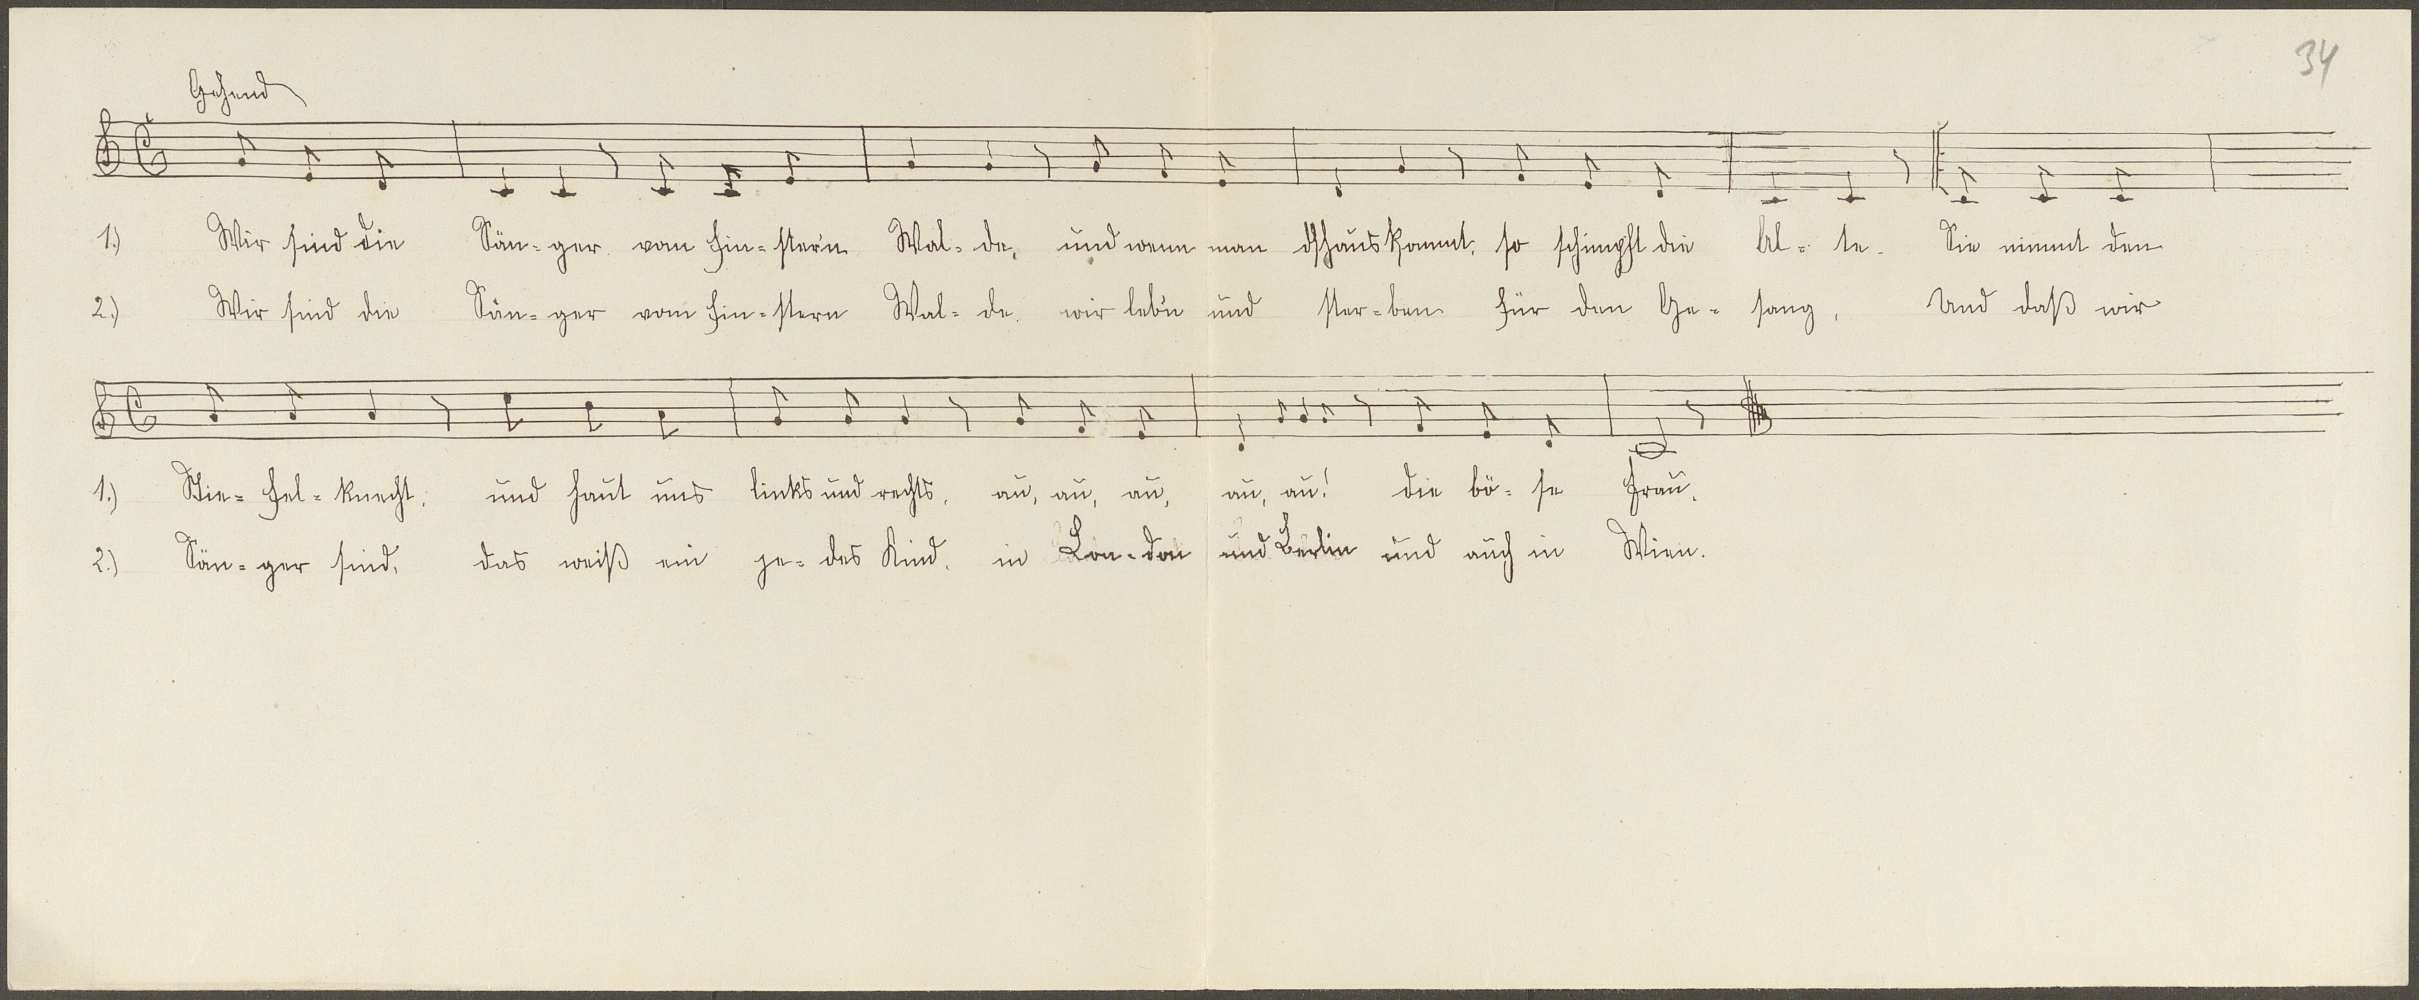 34
Gehend
1.) Wir sind die Sän-ger vom fin-stern Wal-de, und wenn man z'haus kommt, so schimpft die Al-te. Sie nimmt den
2.) Wir sind die Sän-ger vom fin-stern Wal-de, wir leb'n und ster-ben für den Ge-sang, Und daß wir
1.) Stie-fel-knecht, und haut uns links und rechts, au, au, au, au, au! die bö-se Frau.
2.) Sän-ger sind, das weiß ein je-des Kind, in Lon-don und Berlin und auch in Wien.